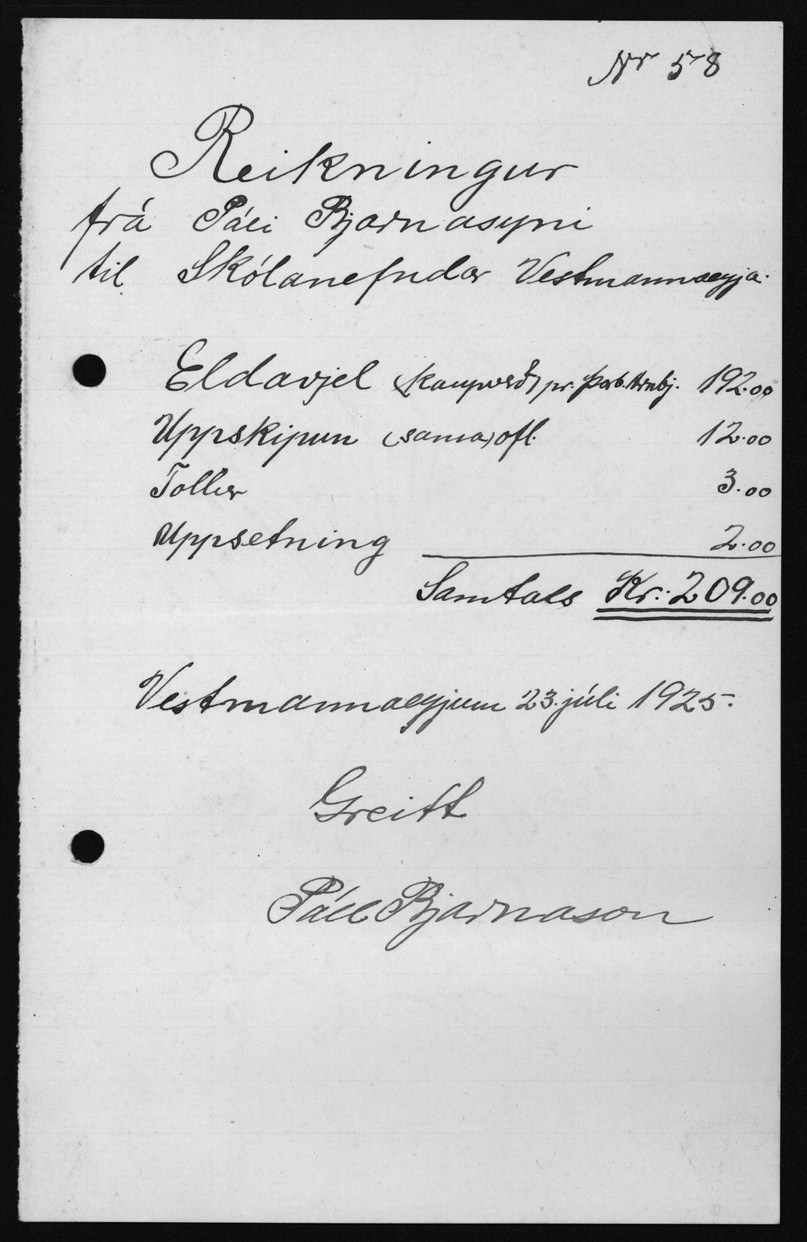 Nr 58
Reikningur
frá Páli Bjarnasyni
til Skólanefndar Vestmannaeyja.
Eldavjel (kaupverð) pr. Þorb. Arnbj. 192.00
Uppskipun (sama) ofl. 12.00
Tollur 3.00
Uppsetning 2.00
Samtals Kr. 209.00
Vestmannaeyjum 23. júlí 1925.
Greitt
Páll Bjarnason